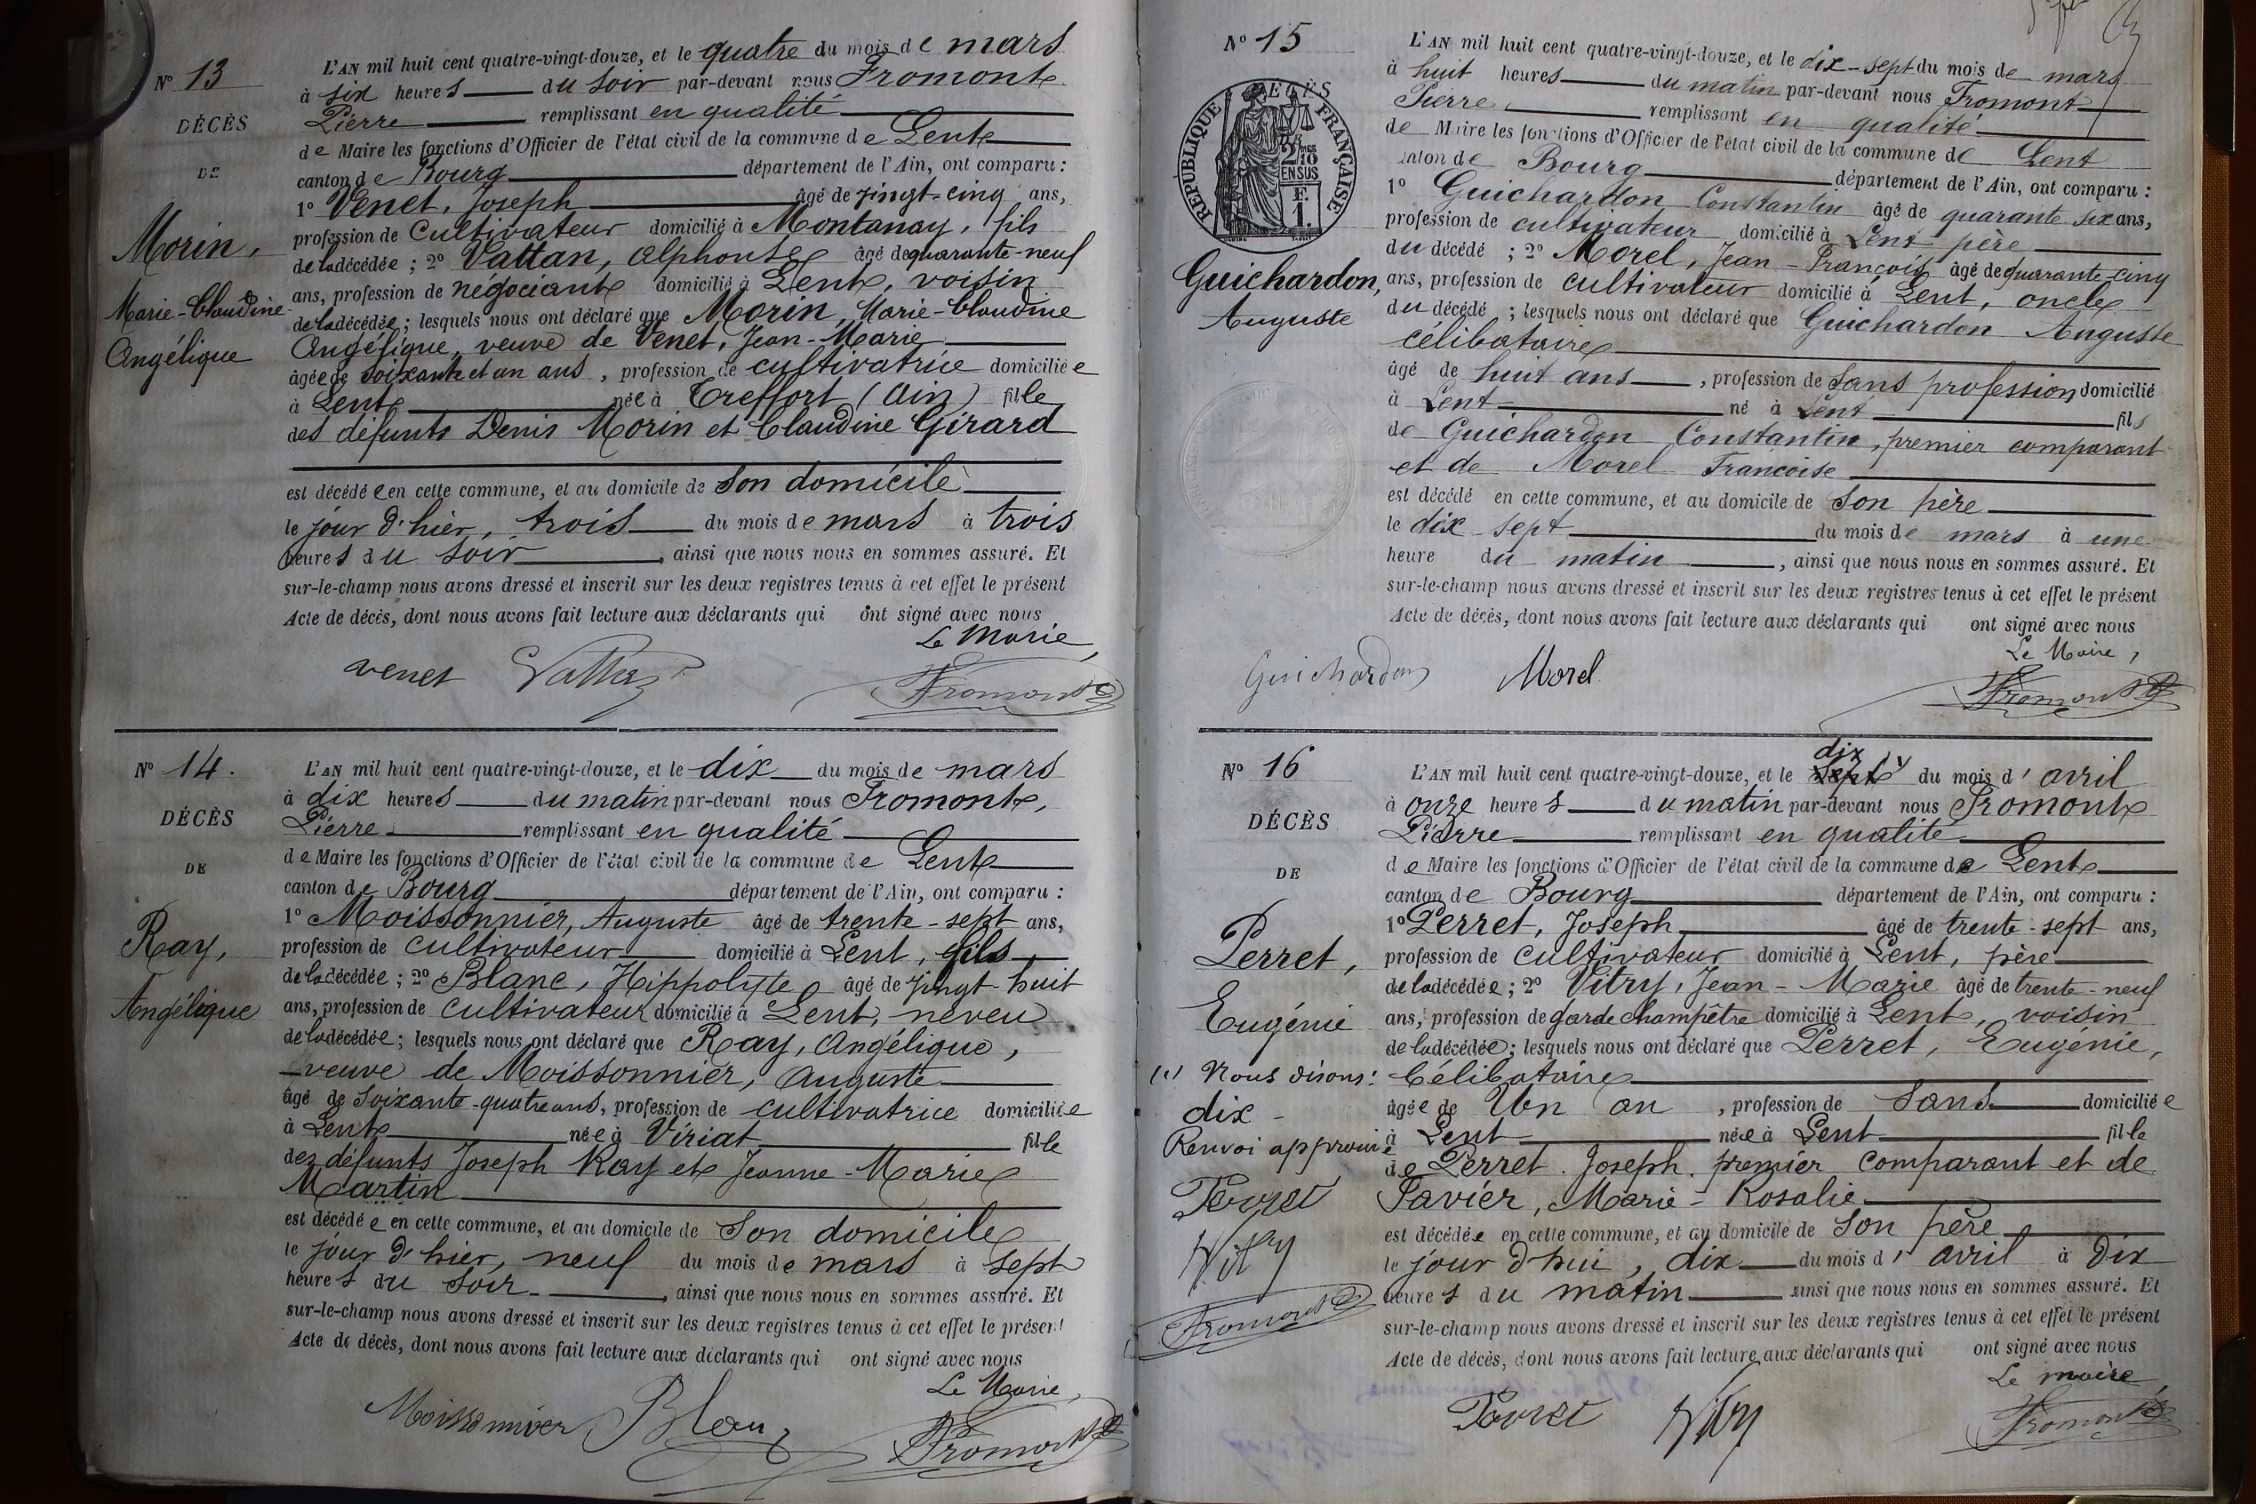 N° 13
DÉCÈS
DE
Morin,
Marie-Claudine
Angélique
L'AN mil huit cent quatre-vingt-douze, et le quatre du mois de mars
à six heures du soir par-devant nous Fromont
Pierre remplissant en qualité
de Maire les fonctions d'Officier de l'état civil de la commune de Lent
canton de Bourg département de l'Ain, ont comparu :
1° Venet, Joseph âgé de vingt-cinq ans,
profession de Cultivateur domicilié à Montanay, fils
de la décédée ; 2° Vattan, Alphonse âgé de quarante-neuf
ans, profession de négociant domicilié à Lent, voisin
de la décédée ; lesquels nous ont déclaré que Morin, Marie-Claudine
Angélique, veuve de Venet, Jean-Marie
âgée de soixante et un ans, profession de cultivatrice domiciliée
à Lent née à Treffort (Ain) fille
des défunts Denis Morin et Claudine Girard
est décédée en cette commune, et au domicile de son domicile
le jour d'hier, trois du mois de mars à trois
heures du soir, ainsi que nous nous en sommes assuré. Et
sur-le-champ nous avons dressé et inscrit sur les deux registres tenus à cet effet le présent
Acte de décès, dont nous avons fait lecture aux déclarants qui ont signé avec nous
Le Maire,
venet Fromont
N° 14.
DÉCÈS
DE
Ray,
Angélique
L'AN mil huit cent quatre-vingt-douze, et le dix du mois de mars
à dix heures du matin par-devant nous Fromont,
Pierre remplissant en qualité
de Maire les fonctions d'Officier de l'état civil de la commune de Lent
canton de Bourg département de l'Ain, ont comparu :
1° Moissonnier, Auguste âgé de trente-sept ans,
profession de cultivateur domicilié à Lent, fils
de la décédée ; 2° Blanc, Hippolyte âgé de vingt-huit
ans, profession de cultivateur domicilié à Lent, neveu
de la décédée ; lesquels nous ont déclaré que Ray, Angélique,
veuve de Moissonnier, Auguste
âgé de soixante-quatre ans, profession de cultivatrice domiciliée
à Lent née à Viriat fille
des défunts Joseph Ray et Jeanne-Marie
Martin
est décédée en cette commune, et au domicile de son domicile
le jour d'hier, neuf du mois de mars à sept
heures du soir, ainsi que nous nous en sommes assuré. Et
sur-le-champ nous avons dressé et inscrit sur les deux registres tenus à cet effet le présent
Acte de décès, dont nous avons fait lecture aux déclarants qui ont signé avec nous
Le Maire,
Moissonnier Blanc Fromont
N° 15
DÉCÈS
RÉPUBLIQUE FRANÇAISE
2/10
EN SUS
F.
1.
Guichardon,
Auguste
L'AN mil huit cent quatre-vingt-douze, et le dix-sept du mois de mars
à huit heures du matin par-devant nous Fromont
Pierre, remplissant en qualité
de Maire les fonctions d'Officier de l'état civil de la commune de Lent
canton de Bourg département de l'Ain, ont comparu :
1° Guichardon Constantin âgé de quarante six ans,
profession de cultivateur domicilié à Lent père
du décédé ; 2° Morel, Jean-François âgé de quarante-cinq
ans, profession de cultivateur domicilié à Lent, oncle
du décédé ; lesquels nous ont déclaré que Guichardon Auguste
célibataire
âgé de huit ans, profession de sans profession domicilié
à Lent né à Lent fils
de Guichardon Constantin, premier comparant
et de Morel Francoise
est décédé en cette commune, et au domicile de son père
le dix-sept du mois de mars à une
heure du matin, ainsi que nous nous en sommes assuré. Et
sur-le-champ nous avons dressé et inscrit sur les deux registres tenus à cet effet le présent
Acte de décès, dont nous avons fait lecture aux déclarants qui ont signé avec nous
Le Maire,
Guichardon Morel Fromont
N° 16
DÉCÈS
DE
Perret,
Eugénie
(1) Nous disons :
dix
Renvoi approuvé
Perret
Vitry
Fromont
dix
L'AN mil huit cent quatre-vingt-douze, et le sept du mois d'avril
à onze heures du matin par-devant nous Fromont
Pierre remplissant en qualité
de Maire les fonctions d'Officier de l'état civil de la commune de Lent
canton de Bourg département de l'Ain, ont comparu :
1° Perret, Joseph âgé de trente-sept ans,
profession de cultivateur domicilié à Lent, père
de la décédée ; 2° Vitry, Jean-Marie âgé de trente-neuf
ans, profession de garde champêtre domicilié à Lent, voisin
de la décédée ; lesquels nous ont déclaré que Perret, Eugénie,
Célibataire
âgée de Un an, profession de sans domiciliée
à Lent née à Lent fille
de Perret. Joseph. premier comparant et de
Savier, Marie-Rosalie
est décédée en cette commune, et au domicile de son père
le jour d'hui, dix du mois d'avril à dix
heures du matin ainsi que nous nous en sommes assuré. Et
sur-le-champ nous avons dressé et inscrit sur les deux registres tenus à cet effet le présent
Acte de décès, dont nous avons fait lecture aux déclarants qui ont signé avec nous
Le maire,
Perret Vitry Fromont